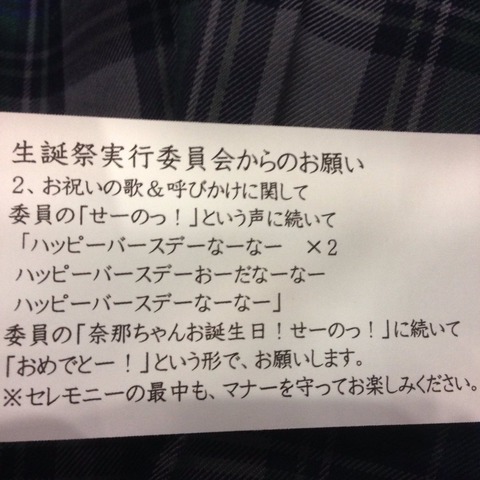 生誕祭実行委員会からのお願い
２、お祝いの歌＆呼びかけに関して
委員の「せーのっ！」という声に続いて
「ハッピーバースデーなーなー　×２
ハッピーバースデーおーだなーなー
ハッピーバースデーなーなー」
委員の「奈那ちゃんお誕生日！せーのっ！」に続いて
「おめでとー！」という形で、お願いします。
※セレモニーの最中も、マナーを守ってお楽しみください。